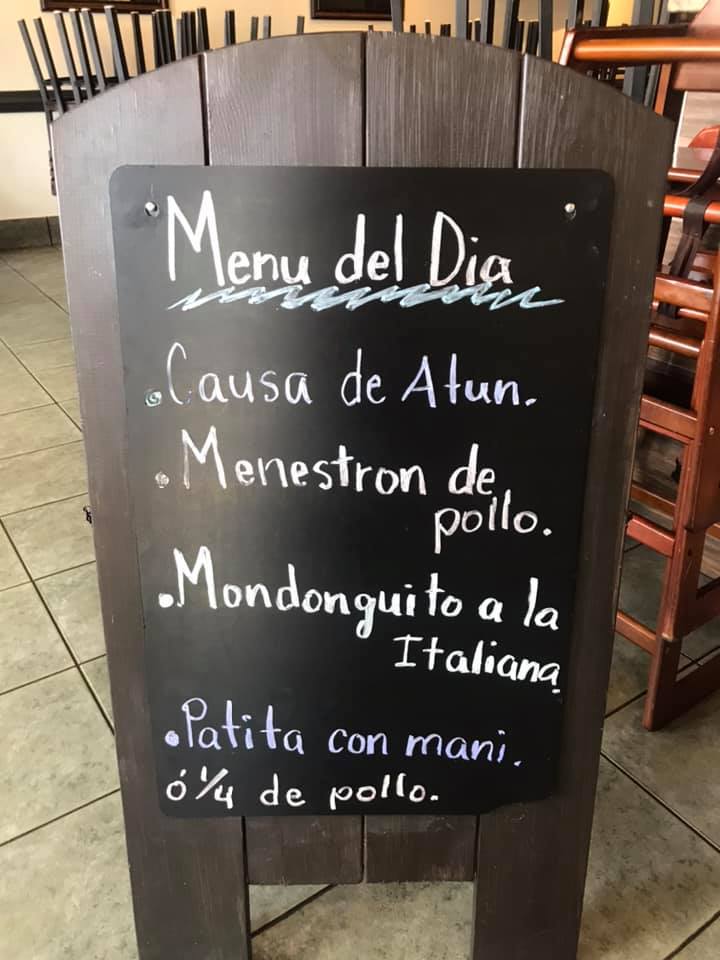 Menu del Dia
. Causa de Atun.
. Menestron de
pollo.
. Mondonguito a la
Italiana.
. Patita con mani.
ó 1/4 de pollo.